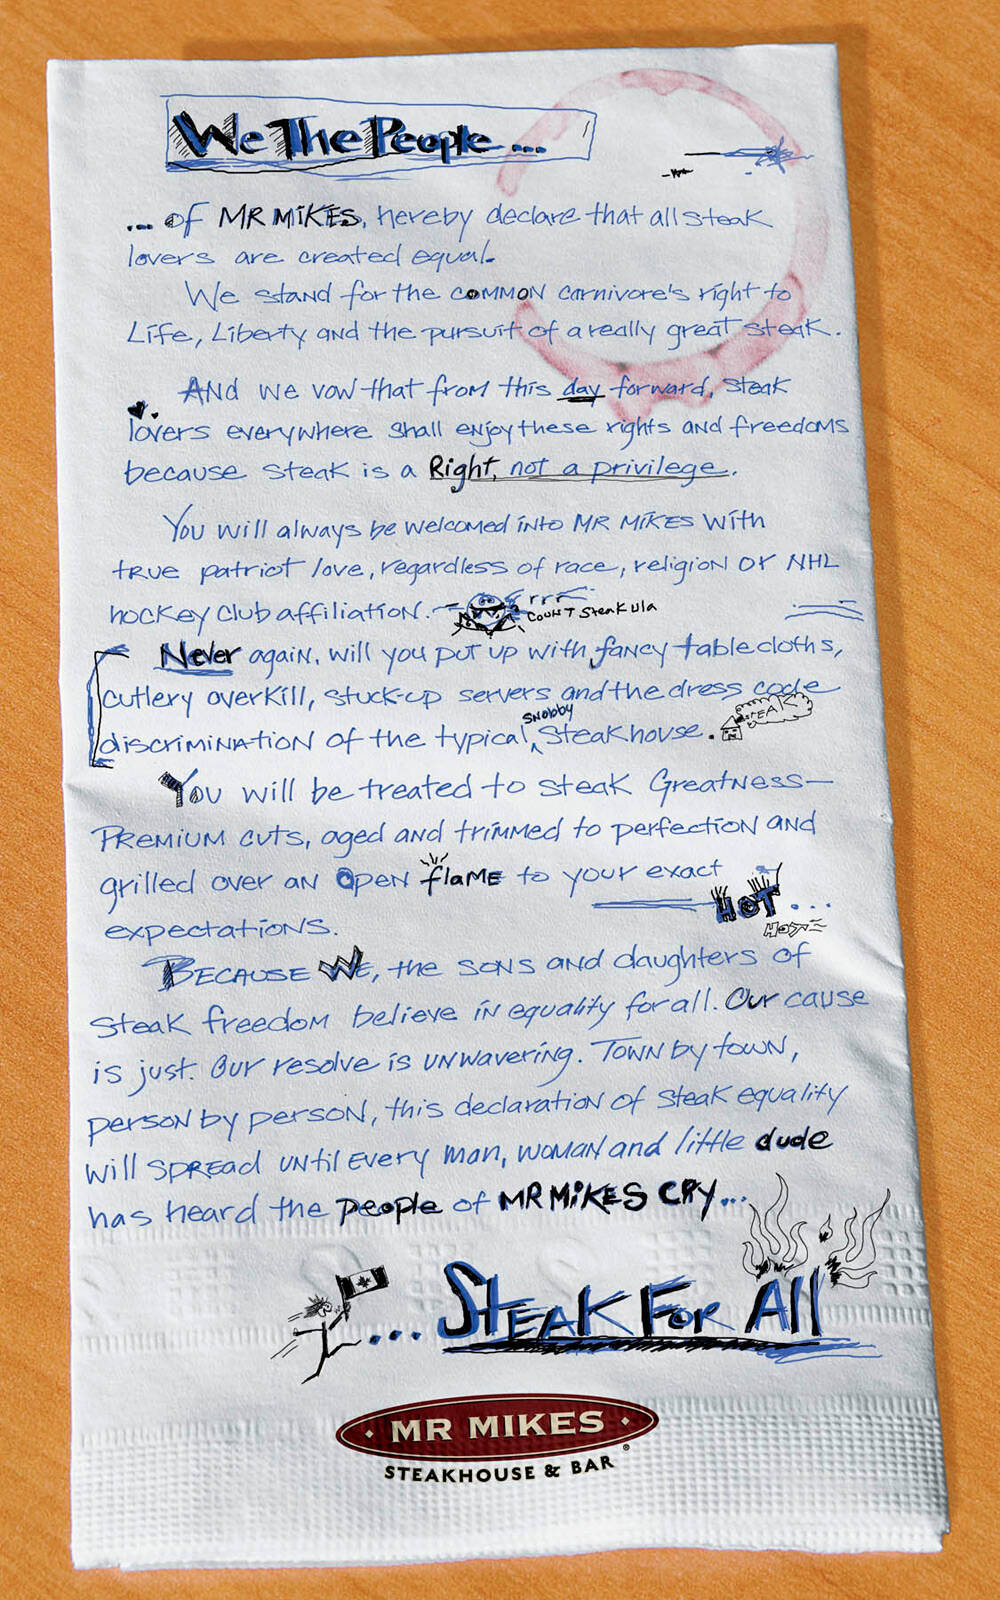 We The People...
... of MR MIKES, hereby declare that all steak
lovers are created equal.
We stand for the common carnivore's right to
Life, Liberty and the pursuit of a really great steak.
And we vow that from this day forward, steak
lovers everywhere shall enjoy these rights and freedoms
because steak is a Right, not a privilege.
You will always be welcomed into MR MIKES with
true patriot love, regardless of race, religion or NHL
hockey club affiliation.
rrr
Count Steakula
Never again, will you put up with fancy tablecloths,
cutlery overkill, stuck-up servers and the dress code
discrimination of the typical snobby steakhouse.
STEAK
You will be treated to steak Greatness—
Premium cuts, aged and trimmed to perfection and
grilled over an open flame to your exact
HOT...
HOT
expectations.
Because We, the sons and daughters of
steak freedom believe in equality for all. Our cause
is just. Our resolve is unwavering. Town by town,
person by person, this declaration of steak equality
will spread until every man, woman and little dude
has heard the people of MR MIKES CRY...
... Steak For All
MR MIKES
STEAKHOUSE & BAR ®